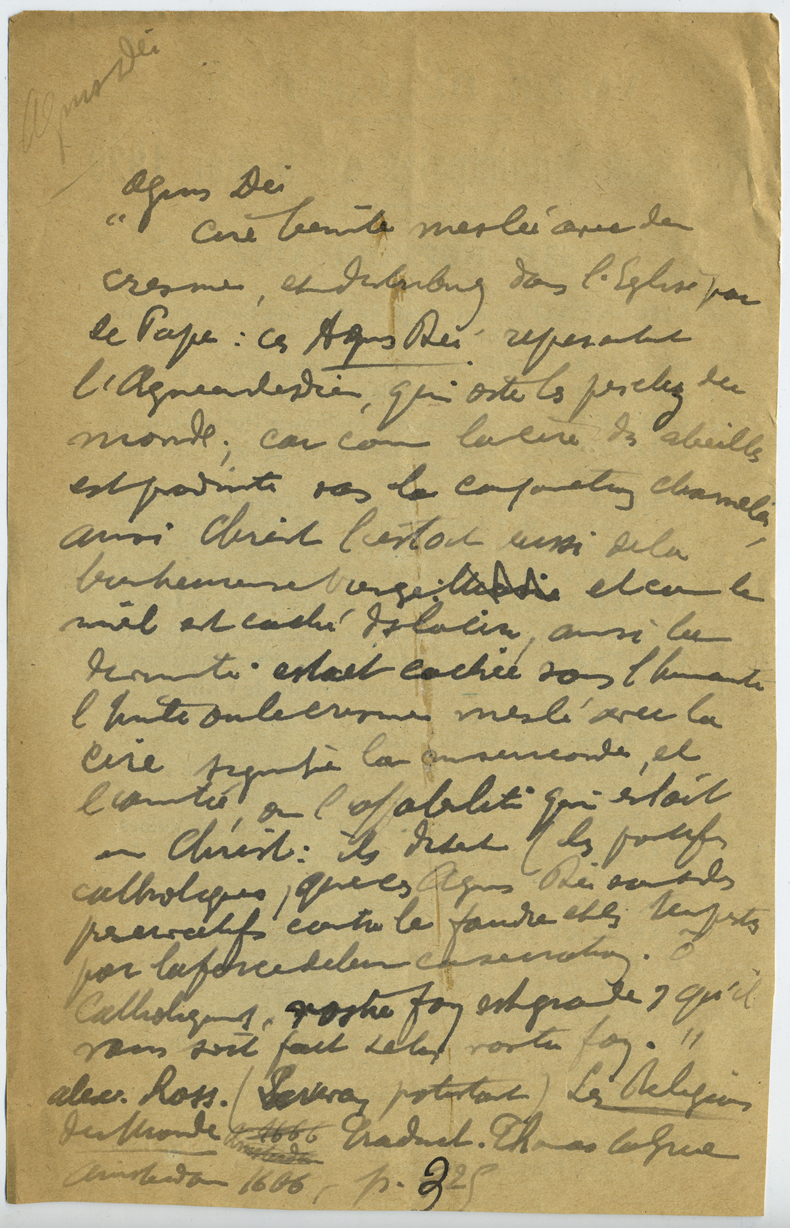 Agnus Dei
Agnus Dei
" Cire benite meslée avec du
cresme, et distribuez dans l'Eglise par
le Pape : ces Agnus Dei
l'Agneau de dieu, qui oste les pechez du
monde; car com la cire des abeilles
est produite sas la
ainsi Christ l'estoit aussi de la
bienheureuse vierge et com le
miel est caché ds la cire, ainsi la
divinité estoit cachée sous l'humanité
l'huile ou le cresme meslé avec la
cire signifie la misericorde, et
l'amitié, ou l'affabilité qui estoit
en Christ : ils disent (les
catholiques, que ces Agnus Dei sont des
preservatifs contre le foudre et les
par la force de leur consecration. Ô
Catholiques, vostre foy est grande, qu'il
vous soit fait selon vostre foy. "
Alex. Ross. ( ) Les Religions
du Monde 1666 Amsterdam Traduct. Thomas La Grue
Amsterdam 1666, p. 325